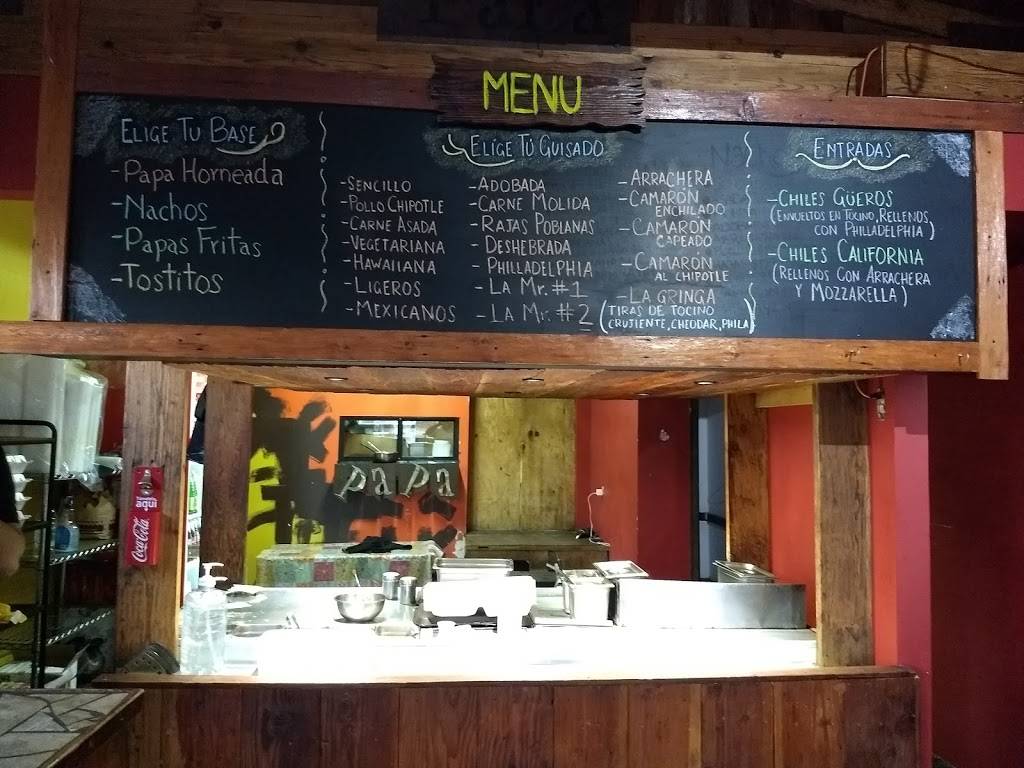 MENU
ELIGE TU BASE
-PAPA HORNEADA
-NACHOS
-PAPAS FRITAS
-TOSTITOS
ELIGE TÚ GUISADO
-SENCILLO
-POLLO CHIPOTLE
-CARNE ASADA
-VEGETARIANA
-HAWAIIANA
-LIGEROS
-MEXICANOS
-ADOBADA
-CARNE MOLIDA
-RAJAS POBLANAS
-DESHEBRADA
-PHILLADELPHIA
-LA Mr. #1
-LA Mr. #2
-ARRACHERA
-CAMARÓN
ENCHILADO
-CAMARÓN
CAPEADO
-CAMARÓN
AL CHIPOTLE
-LA GRINGA
(TIRAS DE TOCINO
CRUJIENTE, CHEDDAR, PHILA)
ENTRADAS
-CHILES GÜEROS
(ENVUELTOS EN TOCINO, RELLENOS
CON PHILLADELPHIA)
-CHILES CALIFORNIA
(RELLENOS CON ARRACHERA
Y MOZZARELLA)
papa
aquí
Coca-Cola